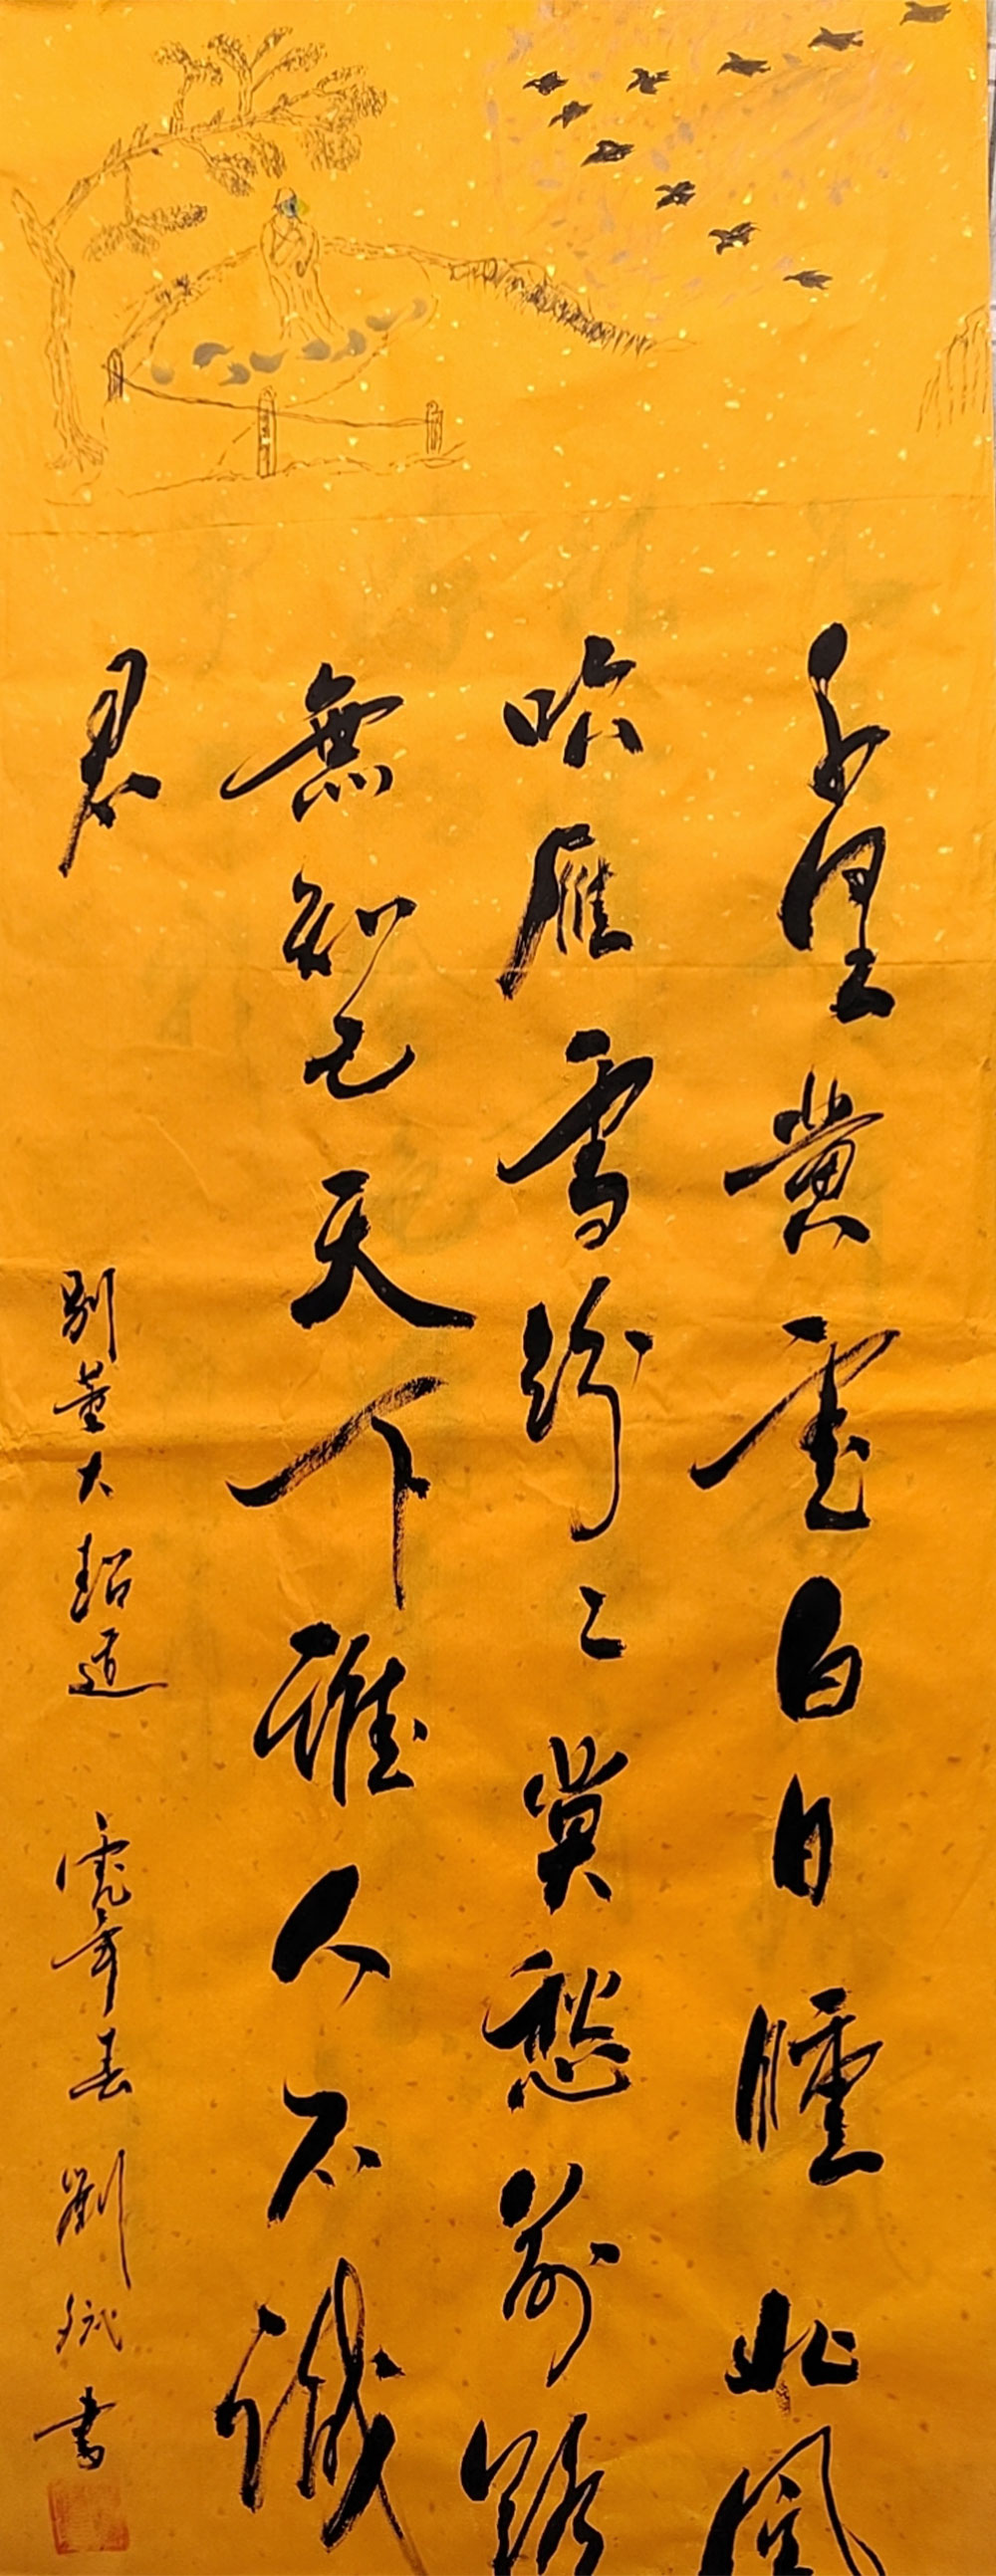 千里黄雲白日曛北風
吹雁雪紛々莫愁前路
無知己天下誰人不識
君
別董大 超道 虎年春 劉斌書